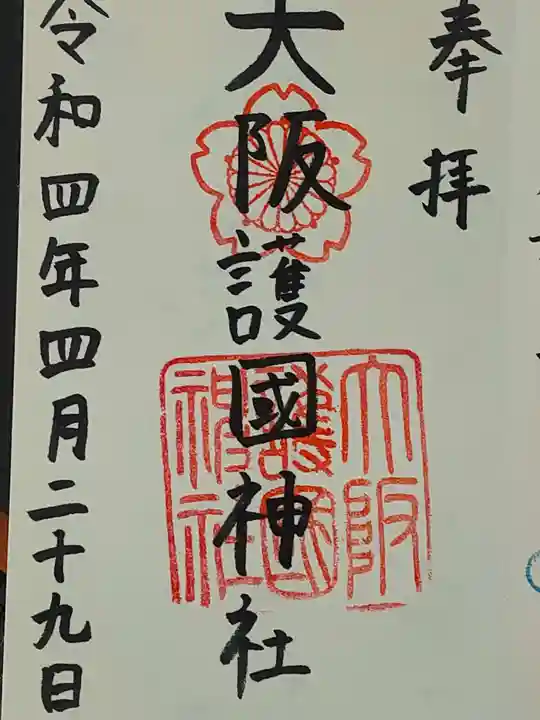 奉拝
大阪護國神社
大阪
護國
神社
令和四年四月二十九日